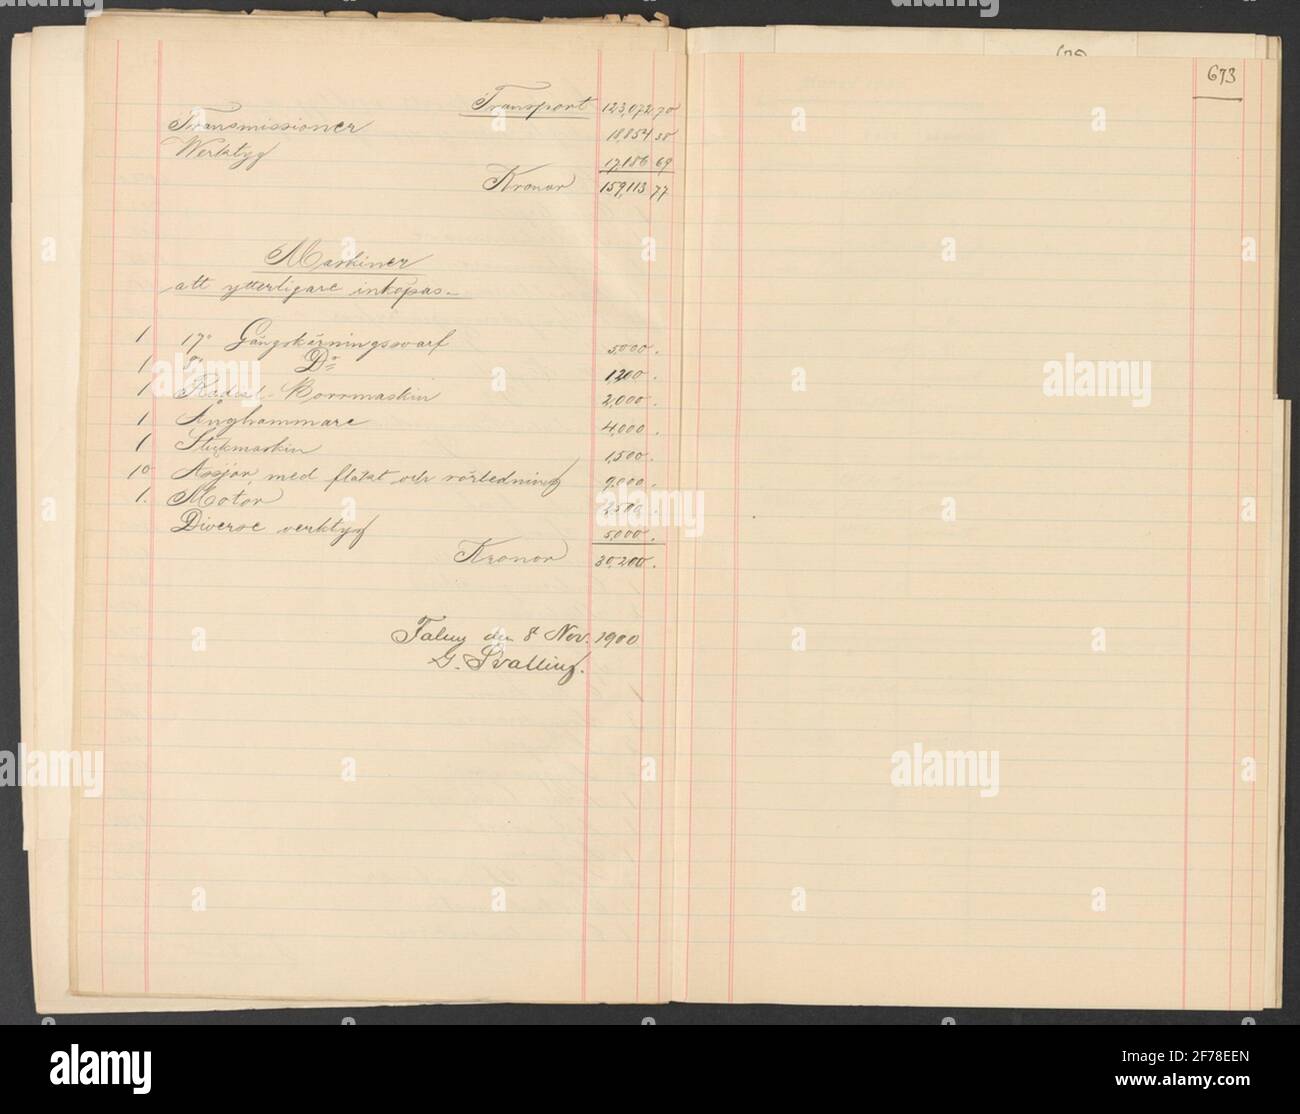 673
Transport 123,072,70
Transmissioner 18,854 38
Werktyg 17,186 69
Kronor 159,113 77
Maskiner
att ytterligare inköpas
1 17" Gängskärningssvarf 5,000.
1 8" Do 1,200.
1 Radial-Borrmaskin 2,000.
1 Ånghammare 4,000.
1 Stickmaskin 1,500.
10 Ässjor med fläkt och rörledning 9,000.
1. Motor 2,500.
Diverse verktyg 5,000.
Kronor 30,200.
Falun den 8 Nov. 1900
G. Svalling.
alamy
Image ID: 2F78EEN
www.alamy.com